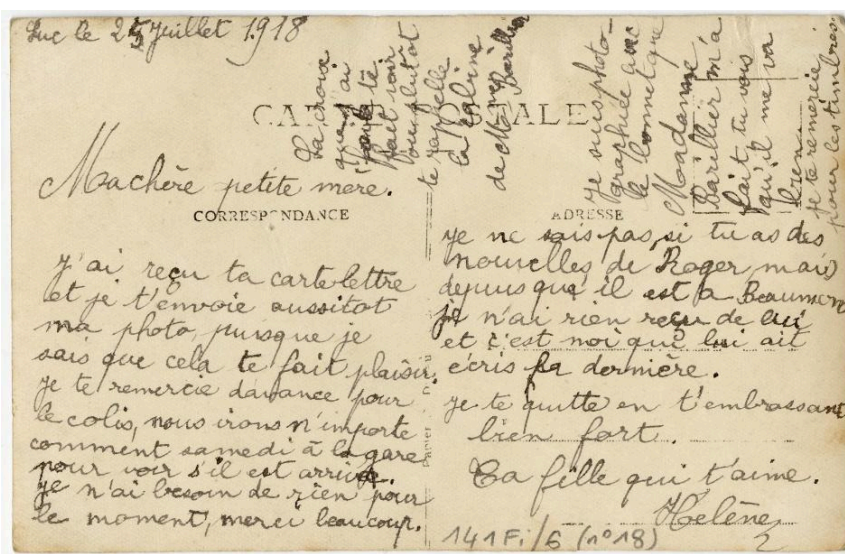 Luc le 25 Juillet 1918
CARTE POSTALE
Ma chère petite mere.
CORRESPONDANCE
j'ai reçu ta carte lettre
et je t'envoie aussitot
ma photo, puisque je
sais que cela te fait plaisir.
je te remercie davance pour
le colis, nous irons n'importe
comment samedi à la gare
pour voir s'il est arrivé.
je n'ai besoin de rien pour
le moment, merci beaucoup.
ADRESSE
je ne sais pas, si tu as des
nouvelles de Roger, mais
depuis qu'il est a Beaumont
je n'ai rien reçu de lui
et c'est moi qui lui ait
écris la dernière.
je te quitte en t'embrassant
bien fort.
Ta fille qui t'aime.
Helène
La croix
que j'ai
fait voir
ou plutot
te rappelle
la cabine
de Mme Barillier
je suis photo-
graphiée avec
le bonnet que
Madame
Barillier m'a
fait tu vois
qu'il me va
bien
je te remercie
pour les timbres
141 Fi/6 (n°18)